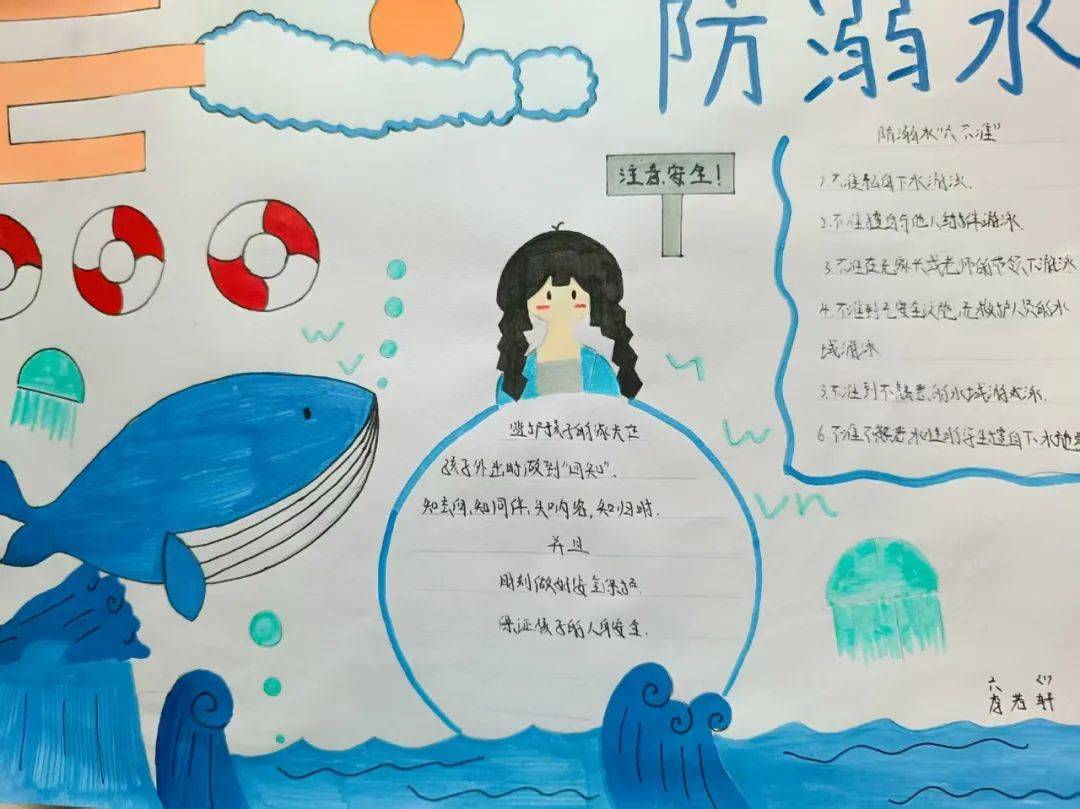 防溺水
注意安全!
防溺水"六不准"
1.不准私自下水游泳.
2.不准擅自与他人结伴游泳.
3.不准在无家长或老师的带领下游泳
4.不准到无安全设施,无救护人员的水
域游泳
5.不准到不熟悉的水域游泳.
6.不准不熟悉水性的学生擅自下水
孩子外出时做到"四知".
知去向,知同伴,知内容,知归时.
并且
时刻做好安全保护
保证孩子的人身安全.
六(2)
若轩